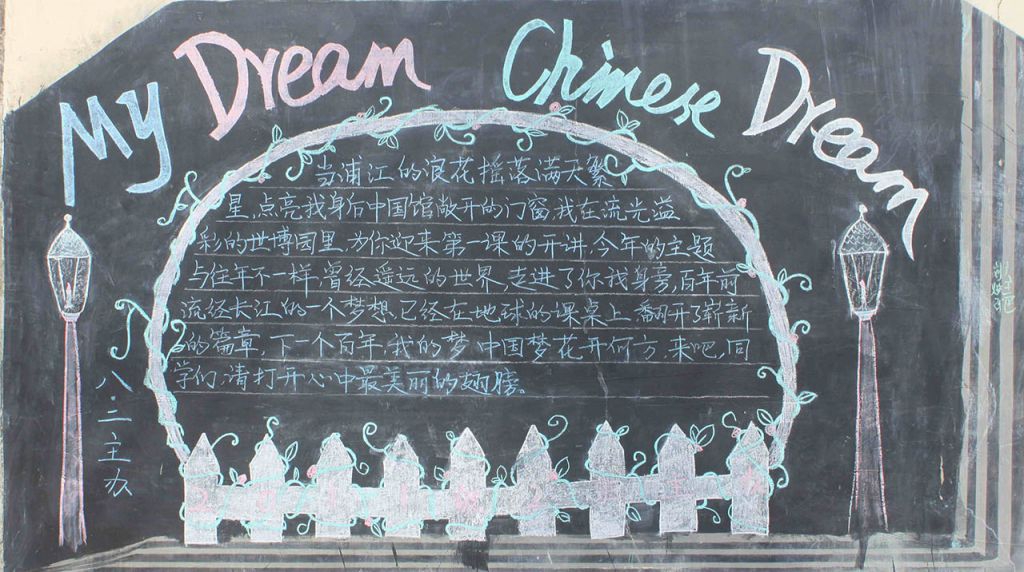 My Dream Chinese Dream
当浦江的浪花摇落满天繁
星,点亮我身后中国馆敞开的门窗,我在流光溢
彩的世博园里,为你迎来第一课的开讲,今年的主题
与往年不一样,曾经遥远的世界,走进了你我身旁,百年前
流经长江的一个梦想,已经在地球的课桌上,翻开了崭新
的篇章,下一个百年,我的梦,中国梦花开何方,来吧,同
学们,请打开心中最美丽的翅膀。
八.二主办